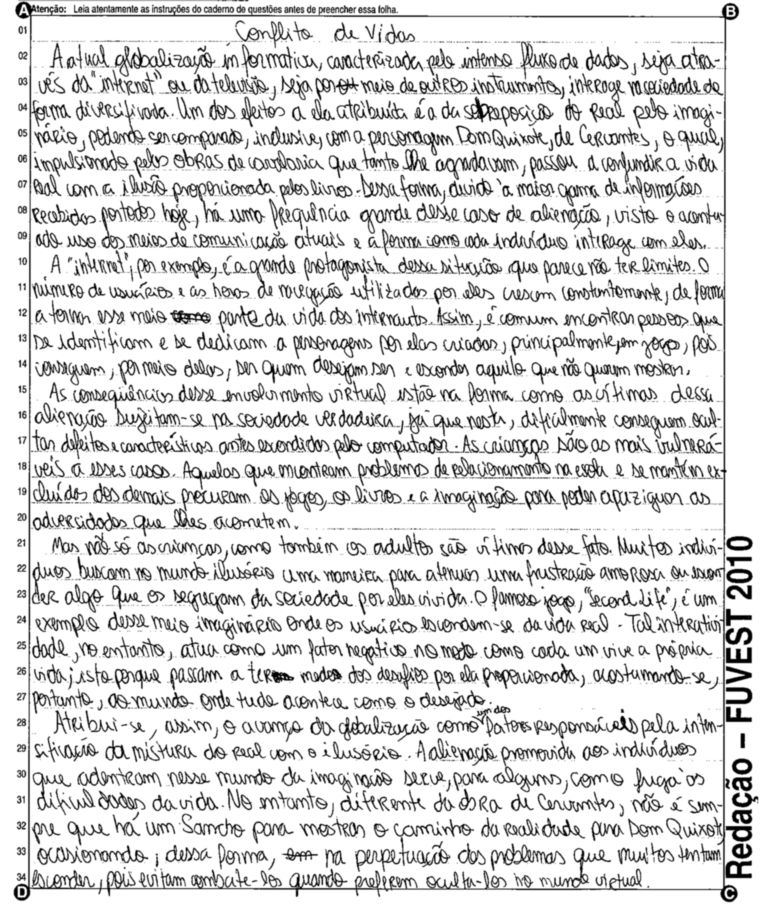 Atenção: Leia atentamente as instruções do caderno de questões antes de preencher essa folha.
A
B
01 Conflito de Vidas
02 A atual globalização informativa, caracterizada pelo intenso fluxo de dados, seja atra-
03 vés da "internet" ou da televisão, seja por meio de outros instrumentos, interage na sociedade de
04 forma diversificada. Um dos efeitos a ela atribuíta é a da sobreposição do Real pelo imagi-
05 nário, podendo ser comparado, inclusive, com a personagem Dom Quixote, de Cervantes, o qual,
06 impulsionado pelas obras de cavalaria que tanto lhe agradavam, passou a confundir a vida
07 Real com a ilusão proporcionada pelos livros. Dessa forma, devido à maior gama de informações
08 Recebidas por todos hoje, há uma frequência grande desse caso de alienação, visto o acentu-
09 ado uso dos meios de comunicação atuais e a forma como cada indivíduo interage com eles.
10 A "internet", por exemplo, é a grande protagonista dessa situação que parece não ter limites. O
11 número de usuários e as horas de navegação utilizadas por eles crescem constantemente, de forma
12 a tornar esse meio parte da vida dos internauts. Assim, é comum encontrar pessoas que
13 se identificam e se dedicam a personagens por elas criadas, principalmente, em jogos, pois
14 conseguem, por meio delas, ser quem desejam ser e esconder aquilo que não querem mostrar.
15 As consequências desse envolvimento virtual estão na forma como as vítimas dessa
16 alienação sujeitam-se na sociedade verdadeira, já que nesta, dificilmente conseguem ocul-
17 tar defeitos e características antes escondidos pelo computador. As caianças são as mais vulnerá-
18 veis a esses casos. Aquelas que encontram problemas de relacionamento na escola e se mantém ex-
19 cluídas dos demais procuram os jogos, os livros e a imaginação para poder apaziguar as
20 adversidades que lhes acometem.
21 Mas não só as crianças, como também os adultos são vítimas desse fato. Muitos indiví-
22 duos buscam no mundo ilusório uma maneira para atenuar uma frustração amorosa ou escon-
23 der algo que os segregam da sociedade por eles vivida. O famoso jogo, "Second Life", é um
24 exemplo desse meio imaginário onde os usuários escondem-se da vida real. Tal interativi-
25 dade, no entanto, atua como um fator negativo no modo como cada um vive a própria
26 vida; isto porque passam a ter medo dos desafios por ela proporcionada, acostumando-se,
27 portanto, ao mundo onde tudo acontece como o desejado.
28 Atribui-se, assim, o avanço da globalização como um dos fatores responsáveis pela inten-
29 sificação da mistura do real com o ilusório. A alienação promovida aos indivíduos
30 que adentram nesse mundo da imaginação serve, para alguns, como fuga às
31 dificuldades da vida. No entanto, diferente da obra de Cervantes, não é sem-
32 pre que há um Sancho para mostrar o caminho da realidade para Dom Quixote,
33 ocasionando, dessa forma, na perpetuação dos problemas que muitos tentam
34 esconder, pois evitam combatê-los quando preferem ocultá-los no mundo virtual.
D
C
Redação – FUVEST 2010